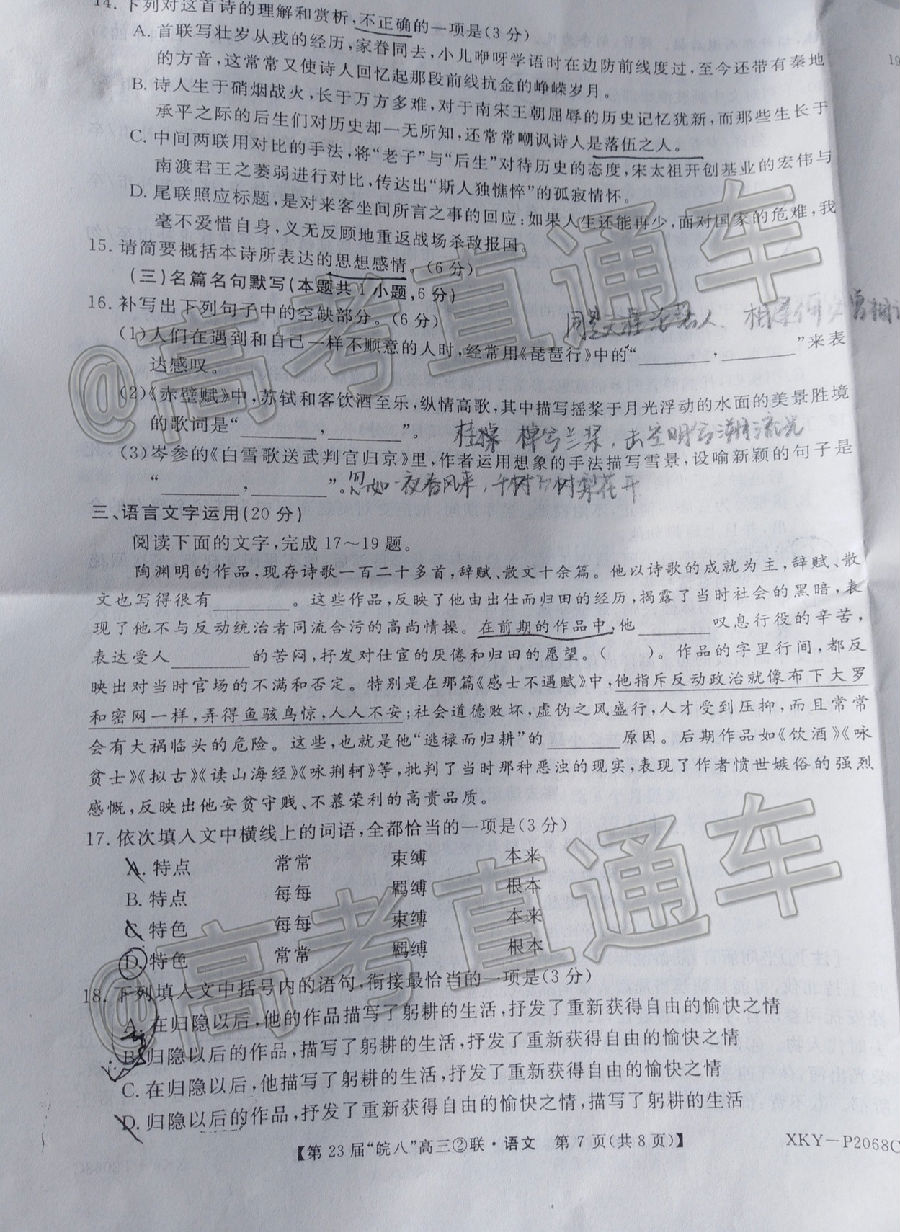 14. 下列对这首诗的理解和赏析,不正确的一项是(3分)
A. 首联写壮岁从戎的经历,家眷同去,小儿咿呀学语时在边防前线度过,至今还带有秦地
的方音,这常常又使诗人回忆起那段前线抗金的峥嵘岁月。
B. 诗人生于硝烟战火,长于万方多难,对于南宋王朝屈辱的历史记忆犹新,而那些生长于
承平之际的后生们对历史却一无所知,还常常嘲讽诗人是落伍之人。
C. 中间两联用对比的手法,将“老子”与“后生”对待历史的态度,宋太祖开创基业的宏伟与
南渡君王之萎弱进行对比,传达出“斯人独憔悴”的孤寂情怀。
D. 尾联照应标题,是对来客坐间所言之事的回应:如果人生还能再少,面对国家的危难,我
毫不爱惜自身,义无反顾地重返战场杀敌报国。
15. 请简要概括本诗所表达的思想感情。(6分)
(三)名篇名句默写(本题共1小题,6分)
16. 补写出下列句子中的空缺部分。(6分)
同是天涯沦落人、相逢何必曾相识
(1)人们在遇到和自己一样不顺意的人时,经常用《琵琶行》中的“________,________”来表
达感叹。
(2)《赤壁赋》中,苏轼和客饮酒至乐,纵情高歌,其中描写摇桨于月光浮动的水面的美景胜境
的歌词是“________,________”。
(3)岑参的《白雪歌送武判官归京》里,作者运用想象的手法描写雪景,设喻新颖的句子是
“________,________”。忽如一夜春风来,千树万树梨花开
三、语言文字运用(20分)
阅读下面的文字,完成17~19题。
陶渊明的作品,现存诗歌一百二十多首,辞赋、散文十余篇。他以诗歌的成就为主,辞赋、散
文也写得很有________。这些作品,反映了他由出仕而归田的经历,揭露了当时社会的黑暗,表
现了他不与反动统治者同流合污的高尚情操。在前期的作品中,他________叹息行役的辛苦,
表达受人________的苦闷,抒发对仕宦的厌倦和归田的愿望。(  )。作品的字里行间,都反
映出对当时官场的不满和否定。特别是在那篇《感士不遇赋》中,他指斥反动政治就像布下大罗
和密网一样,弄得鱼骇鸟惊,人人不安;社会道德败坏,虚伪之风盛行,人才受到压抑,而且常常
会有大祸临头的危险。这些,也就是他“逃禄而归耕”的________原因。后期作品如《饮酒》《咏
贫士》《拟古》《读山海经》《咏荆轲》等,批判了当时那种恶浊的现实,表现了作者愤世嫉俗的强烈
感慨,反映出他安贫守贱、不慕荣利的高贵品质。
17. 依次填入文中横线上的词语,全都恰当的一项是(3分)
A. 特点 常常 束缚 本来
B. 特点 每每 羁缚 根本
C. 特色 每每 束缚 本来
D. 特色 常常 羁缚 根本
18. 下列填入文中括号内的语句,衔接最恰当的一项是(3分)
A. 在归隐以后,他的作品描写了躬耕的生活,抒发了重新获得自由的愉快之情
B. 归隐以后的作品,描写了躬耕的生活,抒发了重新获得自由的愉快之情
C. 在归隐以后,他描写了躬耕的生活,抒发了重新获得自由的愉快之情
D. 归隐以后的作品,抒发了重新获得自由的愉快之情,描写了躬耕的生活
【第23届“皖八”高三②联·语文 第7页(共8页)】 XKY-P2068C
@高考直通车
@高考直通车